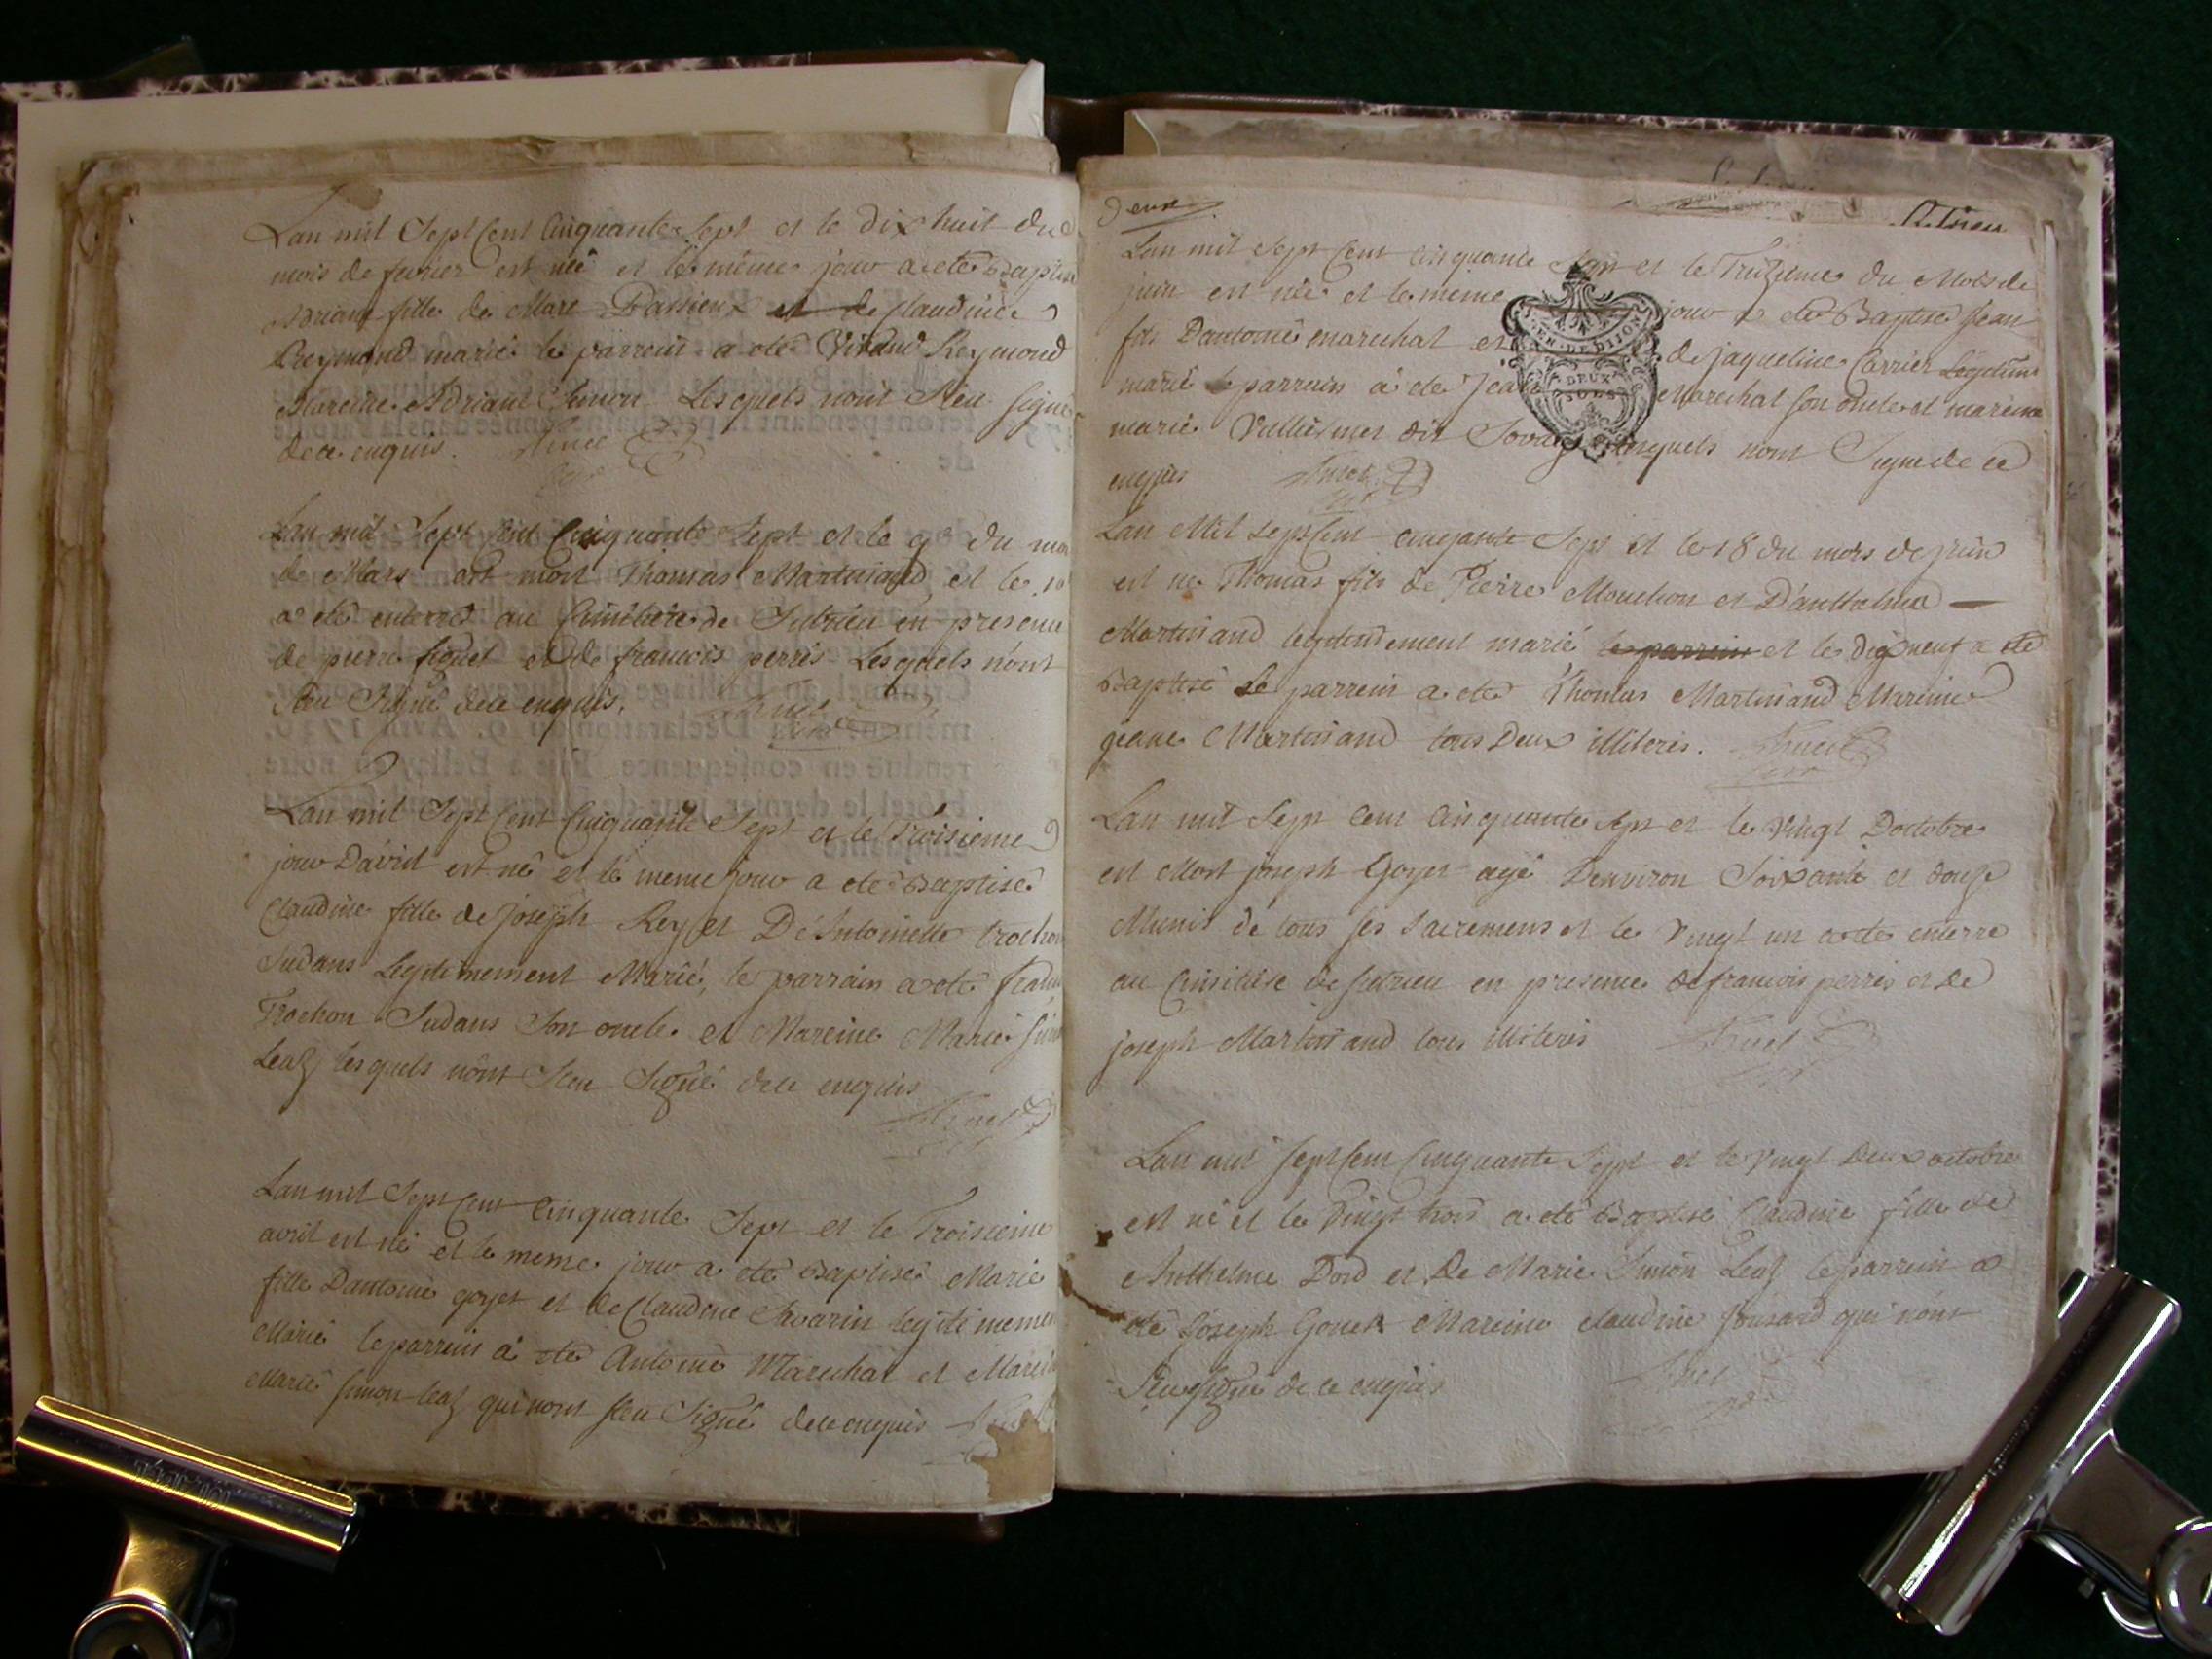 Lan mil Sept Cent Cinquante Sept et le dix huit du
mois de fevrier est née et le même jour a eté Baptisé
Adriane fille de Marc Passieux et de Claudine
Reymond marié le parrein a eté Vivand Reymond
Mareine Adriane Simon Lesquels nont Sceu signé
de ce enquis.
Lan mil Sept Cent Cinquante Sept et le 9e du moi
de Mars est mort Thomas Martinand et le 10
a eté enterré au Cimitiere de Sutrieu en presence
de pierre figuet et de francois perris Lesquels n'ont
Sceu Signé de ce enquis.
Lan mil Sept Cent Cinquante Sept et le Troisieme
jour Davril est né et le meme jour a eté Baptisé
Claudine fille de joseph Rey et D'Antoinette trochon
Judans Legitimement Marié, le parrain a eté
Trochon Judans Son oncle et Mareine Marie
Leaz lesquels nônt Sceu Signé de ce enquis
Lan mil Sept Cent Cinquante Sept et le Troisieme
avril est né et le meme jour a eté Baptisé Marie
fille Dantoine goyet et de Claudine Savarin legitimement
Marié le parrein a eté Antoine Marechal et Mareine
Marie Simon Leaz qui nont sceu Signé de ce enquis
Deux
Sutrieu
Lan mil Sept Cent Cinquante Sept et le Treizieme du Mois de
juin est née et le meme jour a eté Baptisé Jean
fils Dantoine marechal et de jaqueline Carrier Legitim
marié le parrain a eté Jean Marechal son oncle et mareine
marie Vulliermet dit lesquels nont Signé de ce
enquis
GEN. DE DIJON
DEUX
SOLS
Lan Mil sept Cent cinquante Sept et le 18 du mois de juin
est né Thomas fils de Pierre Mouchon et D'anthelma
Martinand legitimement marié le parrein et le dixneuf a eté
Baptisé Le parrein a eté Thomas Martinand Mareine
jeane Martinand tous Deux illiteris.
Lan mil Sept Cent Cinquante Sept et le Vingt Doctobre
est Mort joseph Goyet agé Denviron Soixante et douze
Munis de tous ses Sacremens et le Vingt un a eté enterré
au Cimitiere de sutrieu en presence de francois perris et de
joseph Martinand tous illiteris
Lan mil Sept Cent Cinquante Sept et le Vingt Deux octobre
est né et le Vingt trois a eté Baptisé Claudine fille de
Anthelme Dord et De Marie Simon Leaz le parrein a
eté Joseph Gouet Mareine claudine qui nónt
Sceu Signé de ce enquis